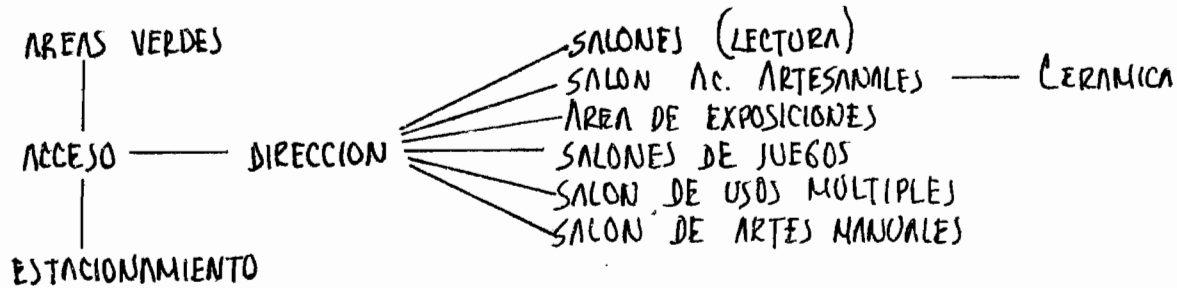 AREAS VERDES
ACCESO
ESTACIONAMIENTO
DIRECCION
SALONES (LECTURA)
SALON AC. ARTESANALES
CERAMICA
AREA DE EXPOSICIONES
SALONES DE JUEGOS
SALON DE USOS MÚLTIPLES
SALON DE ARTES MANUALES